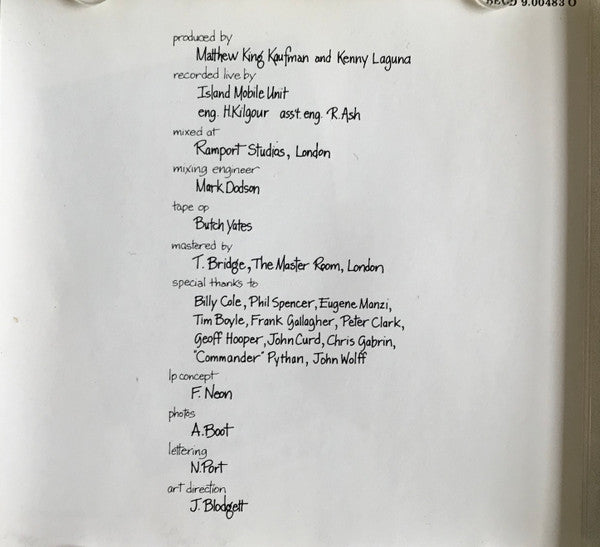 BECD 9.00483 O
produced by
Matthew King Kaufman and Kenny Laguna
recorded live by
Island Mobile Unit
eng. H.Kilgour asst. eng. R.Ash
mixed at
Ramport Studios, London
mixing engineer
Mark Dodson
tape op
Butch Yates
mastered by
T. Bridge, The Master Room, London
special thanks to
Billy Cole, Phil Spencer, Eugene Manzi,
Tim Boyle, Frank Gallagher, Peter Clark,
Geoff Hooper, John Curd, Chris Gabrin,
"Commander" Pythan, John Wolff
lp concept
F. Neon
photos
A.Boot
lettering
N.Port
art direction
J. Blodgett